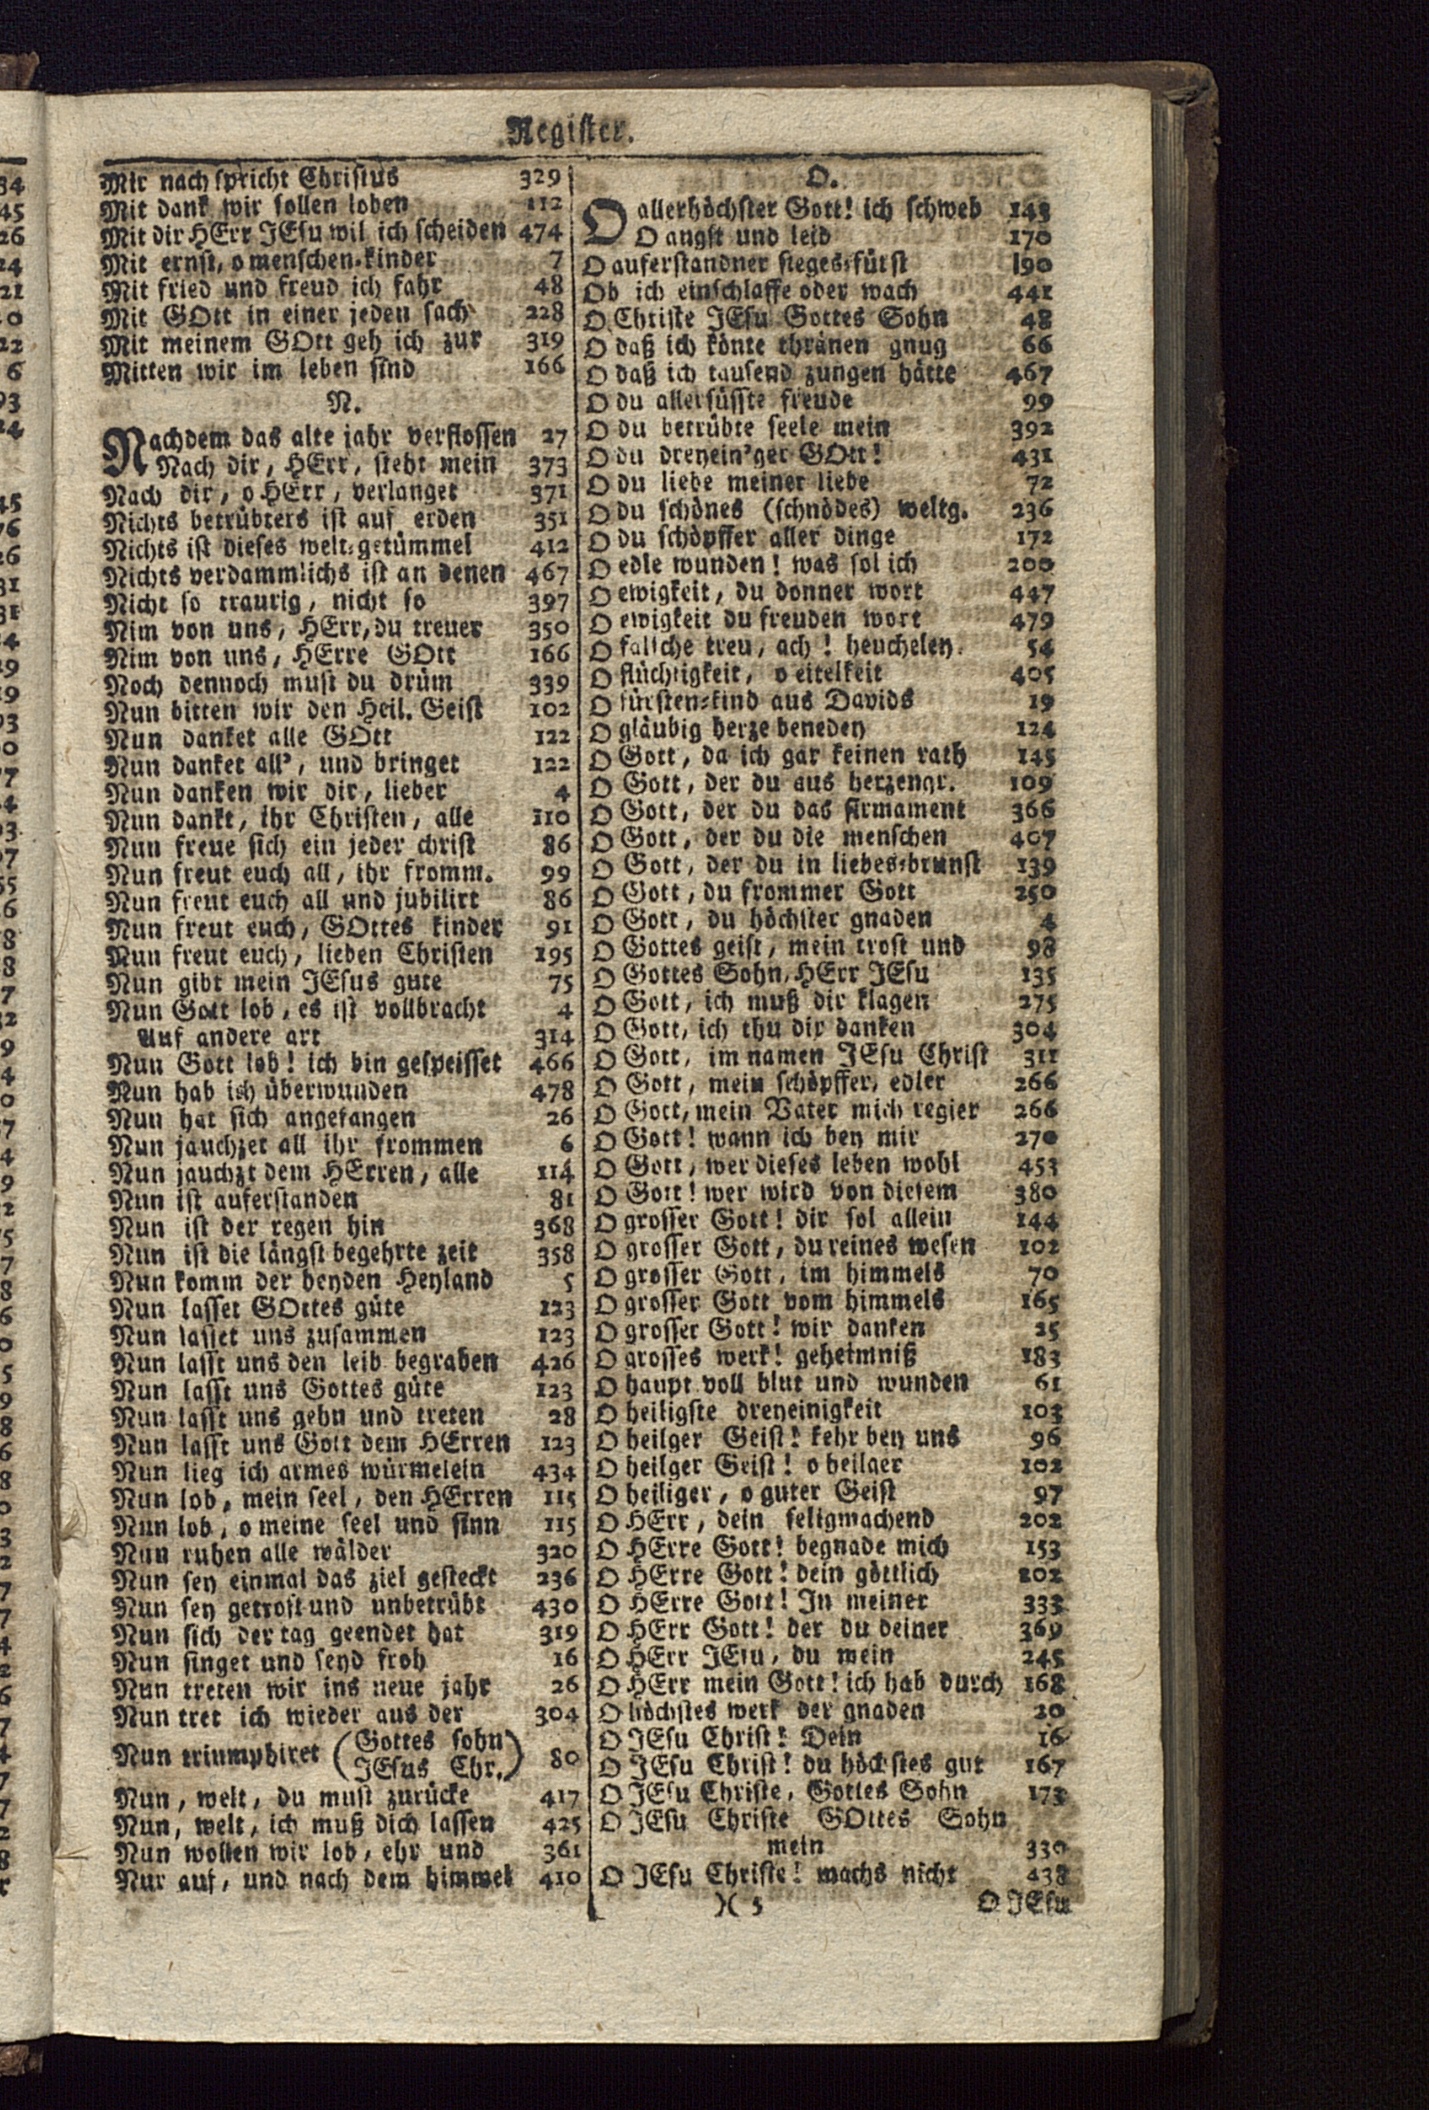 Register.
Mir nach spricht Christus 329
Mit dank wir sollen loben 112
Mit dir HErr JEsu wil ich scheiden 474
Mit ernst, o menschen-kinder 7
Mit fried und freud ich fahr 48
Mit GOtt in einer jeden sach 228
Mit meinem GOtt geh ich zur 319
Mitten wir im leben sind 166
N.
Nachdem das alte jahr verflossen 27
Nach dir, HErr, steht mein 373
Nach dir, o HErr, verlanget 371
Nichts betrübters ist auf erden 351
Nichts ist dieses welt-getümmel 412
Nichts verdammlichs ist an denen 467
Nicht so traurig, nicht so 397
Nim von uns, HErr, du treuer 350
Nim von uns, HErre GOtt 166
Noch dennoch must du drüm 339
Nun bitten wir den Heil. Geist 102
Nun danket alle GOtt 122
Nun danket all', und bringet 122
Nun danken wir dir, lieber 4
Nun dankt, ihr Christen, alle 110
Nun freue sich ein jeder christ 86
Nun freut euch all, ihr fromm. 99
Nun freut euch all und jubilirt 86
Nun freut euch, GOttes kinder 91
Nun freut euch, lieben Christen 195
Nun gibt mein JEsus gute 75
Nun Gott lob, es ist vollbracht 4
Auf andere art 314
Nun Gott lob! ich bin gespeisset 466
Nun hab ich überwunden 478
Nun hat sich angefangen 26
Nun jauchzet all ihr frommen 6
Nun jauchzt dem HErren, alle 114
Nun ist auferstanden 81
Nun ist der regen hin 368
Nun ist die längst begehrte zeit 358
Nun komm der heyden Heyland 5
Nun lasset GOttes güte 123
Nun lasset uns zusammen 123
Nun lasst uns den leib begraben 426
Nun lasst uns Gottes güte 123
Nun lasst uns gehn und treten 28
Nun lasst uns Gott dem HErren 123
Nun lieg ich armes würmelein 434
Nun lob, mein seel, den HErren 115
Nun lob, o meine seel und sinn 115
Nun ruhen alle wälder 320
Nun sey einmal das ziel gesteckt 236
Nun sey getrost und unbetrübt 430
Nun sich der tag geendet hat 319
Nun singet und seyd froh 16
Nun treten wir ins neue jahr 26
Nun tret ich wieder aus der 304
Nun triumphiret (Gottes sohn
JEsus Chr.) 80
Nun, welt, du must zurücke 417
Nun, welt, ich muß dich lassen 425
Nun wollen wir lob, ehr und 361
Nur auf, und nach dem himmel 410
O.
O allerhöchster Gott! ich schweb 143
O angst und leid 170
O auferstandner sieges-fürst 190
Ob ich einschlaffe oder wach 441
O Christe JEsu Gottes Sohn 48
O daß ich könte thränen gnug 66
O daß ich tausend zungen hätte 467
O du allersüsste freude 99
O du betrübte seele mein 392
O du dreyein'ger GOtt! 431
O du liebe meiner liebe 72
O du schönes (schnödes) weltg. 236
O du schöpffer aller dinge 172
O edle wunden! was sol ich 200
O ewigkeit, du donner wort 447
O ewigkeit du freuden wort 479
O falsche treu, ach! heucheley. 54
O flüchtigkeit, o eitelkeit 405
O fürsten-kind aus Davids 19
O gläubig herze benedey 124
O Gott, da ich gar keinen rath 145
O Gott, der du aus herzengr. 109
O Gott, der du das firmament 366
O Gott, der du die menschen 407
O Gott, der du in liebes-brunst 139
O Gott, du frommer Gott 250
O Gott, du höchster gnaden 4
O Gottes geist, mein trost und 98
O Gottes Sohn, HErr JEsu 135
O Gott, ich muß dir klagen 275
O Gott, ich thu dir danken 304
O Gott, im namen JEsu Christ 311
O Gott, mein schöpffer, edler 266
O Gott, mein Vater mich regier 266
O Gott! wann ich bey mir 270
O Gott, wer dieses leben wohl 453
O Gott! wer wird von diesem 380
O grosser Gott! dir sol allein 144
O grosser Gott, du reines wesen 102
O grosser Gott, im himmels 70
O grosser Gott vom himmels 165
O grosser Gott! wir danken 25
O grosses werk! geheimniß 183
O haupt voll blut und wunden 61
O heiligste dreyeinigkeit 103
O heilger Geist! kehr bey uns 96
O heilger Geist! o heilger 102
O heiliger, o guter Geist 97
O HErr, dein seligmachend 202
O HErre Gott! begnade mich 153
O HErre Gott! dein göttlich 202
O HErre Gott! In meiner 333
O HErr Gott! der du deiner 369
O HErr JEsu, du mein 245
O HErr mein Gott! ich hab durch 168
O höchstes werk der gnaden 20
O JEsu Christ! Dein 16
O JEsu Christ! du höchstes gut 167
O JEsu Christe, Gottes Sohn 173
O JEsu Christe GOttes Sohn
mein 330
O JEsu Christe! machs nicht 438
)( 5 O JEsu